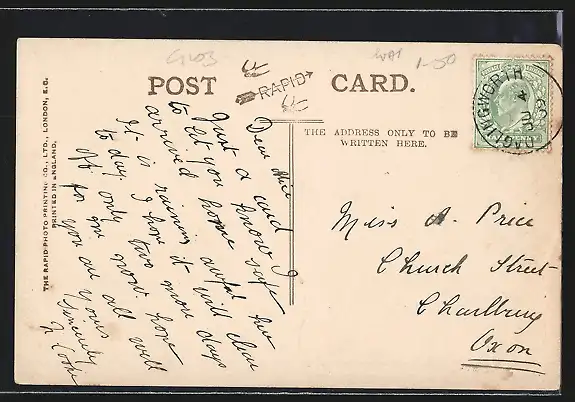 GLOS
WAR
1-50
POST CARD.
RAPID
THE RAPID PHOTO PRINTING CO., LTD., LONDON, E.C.
PRINTED IN ENGLAND.
THE ADDRESS ONLY TO BE
WRITTEN HERE.
DAGLINGWORTH
Dear
Just a card
to let you know I
arrived home safe
It is raining awful here
to day. I hope it will clear
off for only two more days
for me now. hope
you are all well
yours
Sincerely
Miss A. Price
Church Street
Charlbury
Oxon